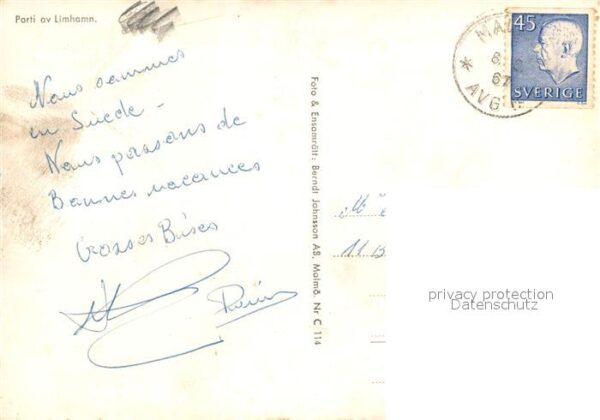 Parti av Limhamn.
45
SVERIGE
MA
6
67
AVG
Nous sommes
en Suède -
Nous passons de
Bonnes vacances
Grosses Bises
Foto & Ensamrätt: Berndt Johnsson AB, Malmö. Nr C 114
11 B
privacy protection
Datenschutz